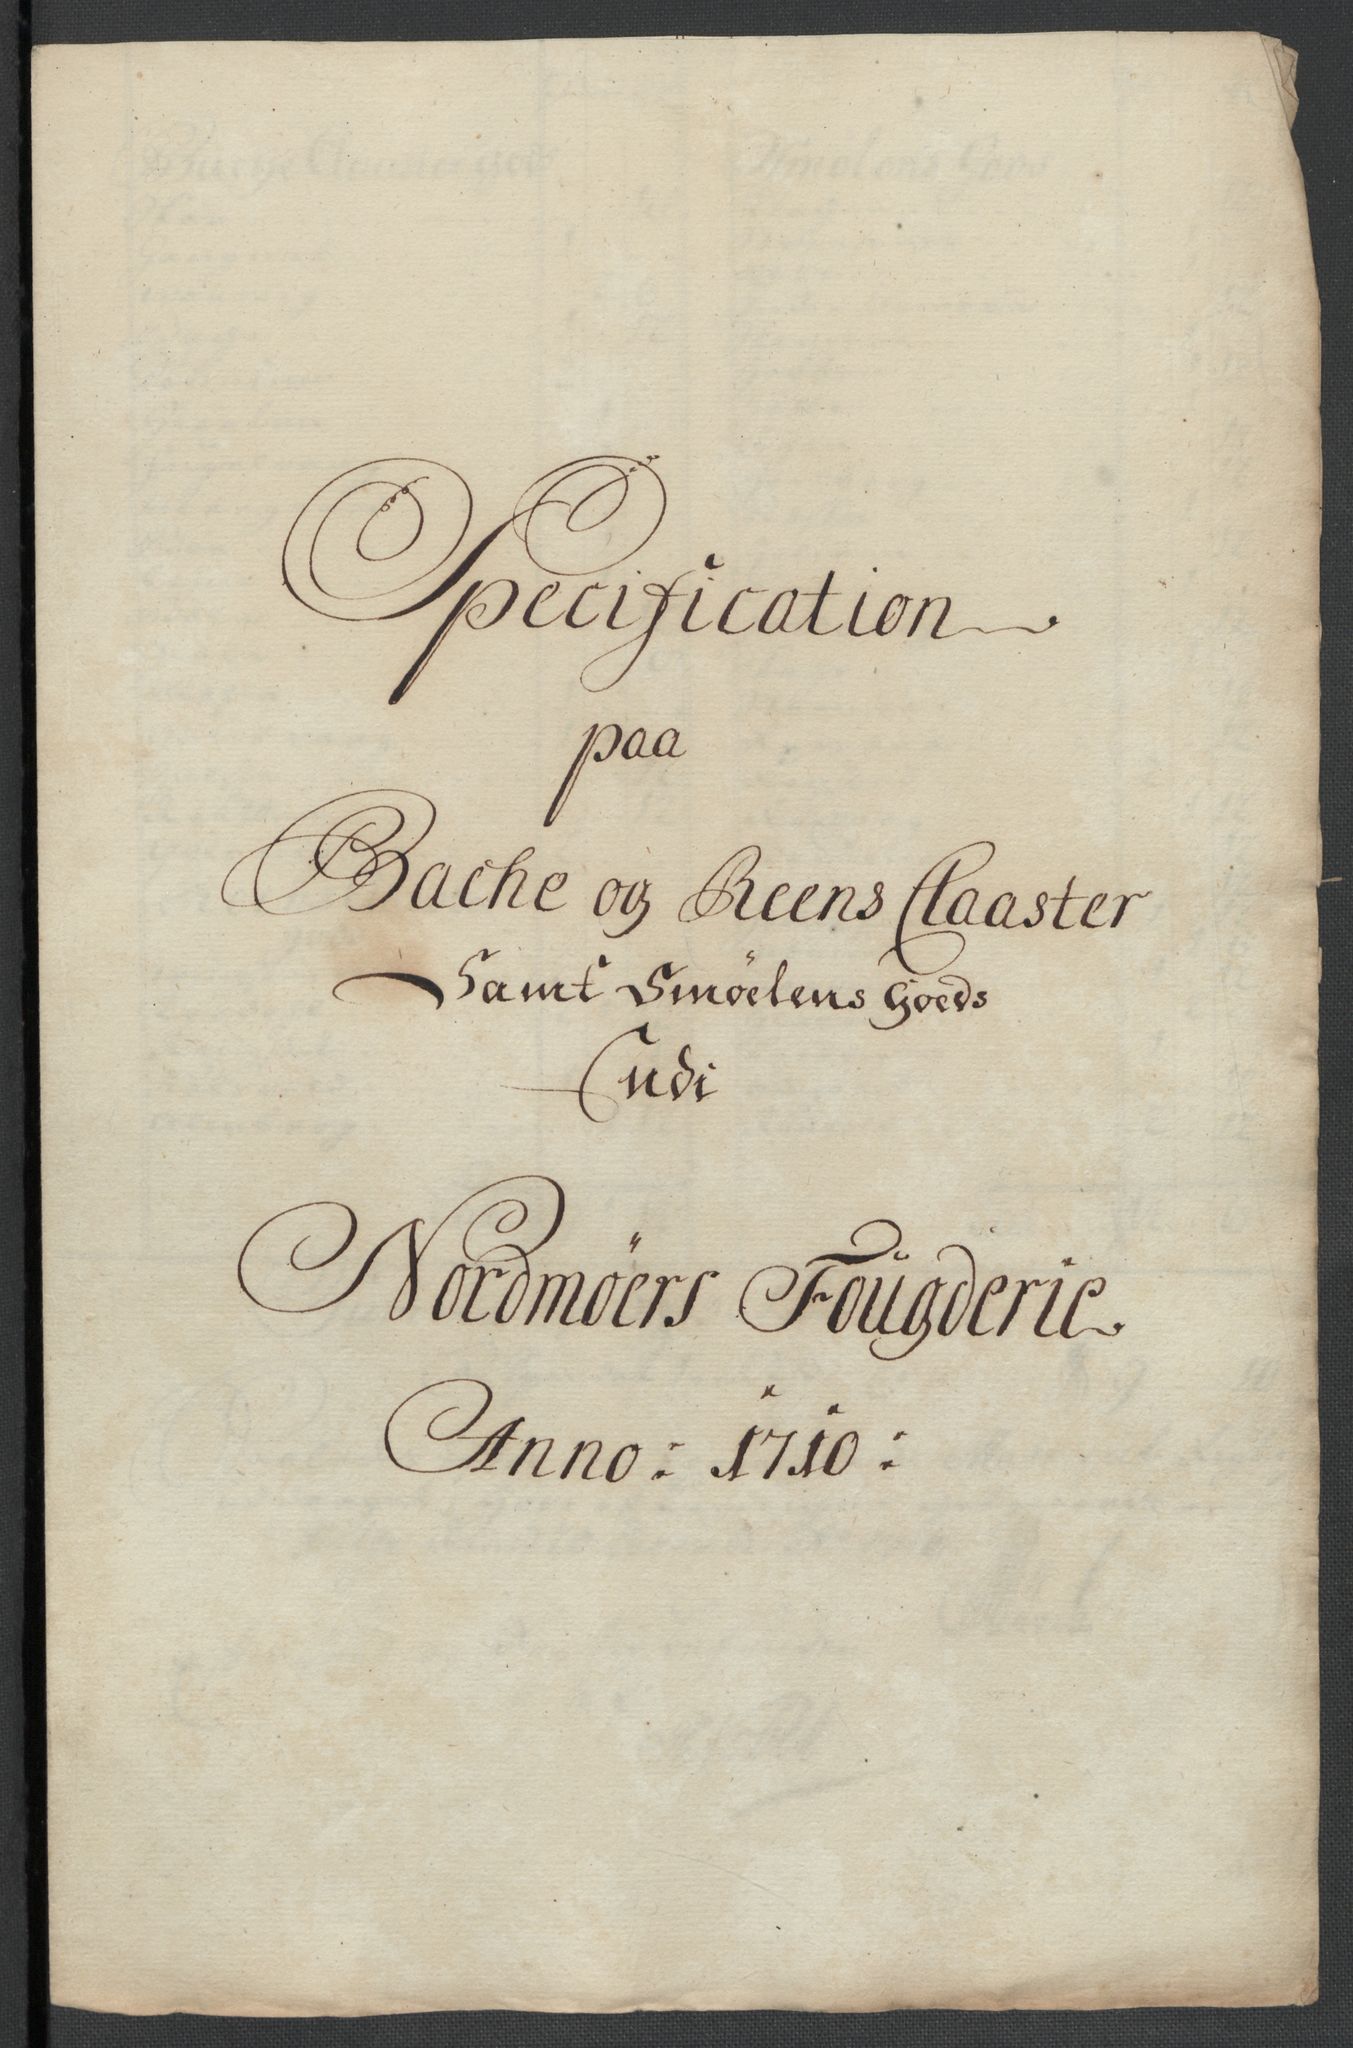 Specification
paa
Bache og Reens Claaster
Samt Smöelens Goeds
Udi
Nordmöers Fougderie
Anno: 1710: